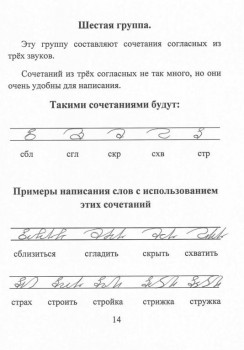 Шестая группа.
Эту группу составляют сочетания согласных из
трёх звуков.
Сочетаний из трёх согласных не так много, но они
очень удобны для написания.
Такими сочетаниями будут:
сбл сгл скр схв стр
Примеры написания слов с использованием
этих сочетаний
сблизиться сгладить скрыть схватить
страх строить стройка стрижка стружка
14